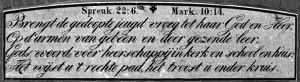 Spreuk. 22:6. Mark. 10:14.
Brengt de gedoopte jeugd vroeg tot haar God en Heer.
Op d'armen van geloof en door gezonde leer;
Gods woord voer' heerschappij in kerk en school en huis.
Het wijst u't rechte pad, het troost u onder kruis.